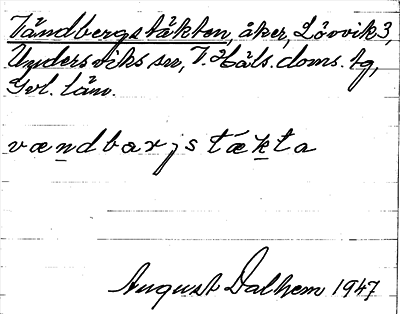 Vändbergstäkten, åker, Lövvik 3,
Undersviks sn, V. Häls. doms. tg,
Gvl. län.
vændbarjstækta
August Dalhem 1947